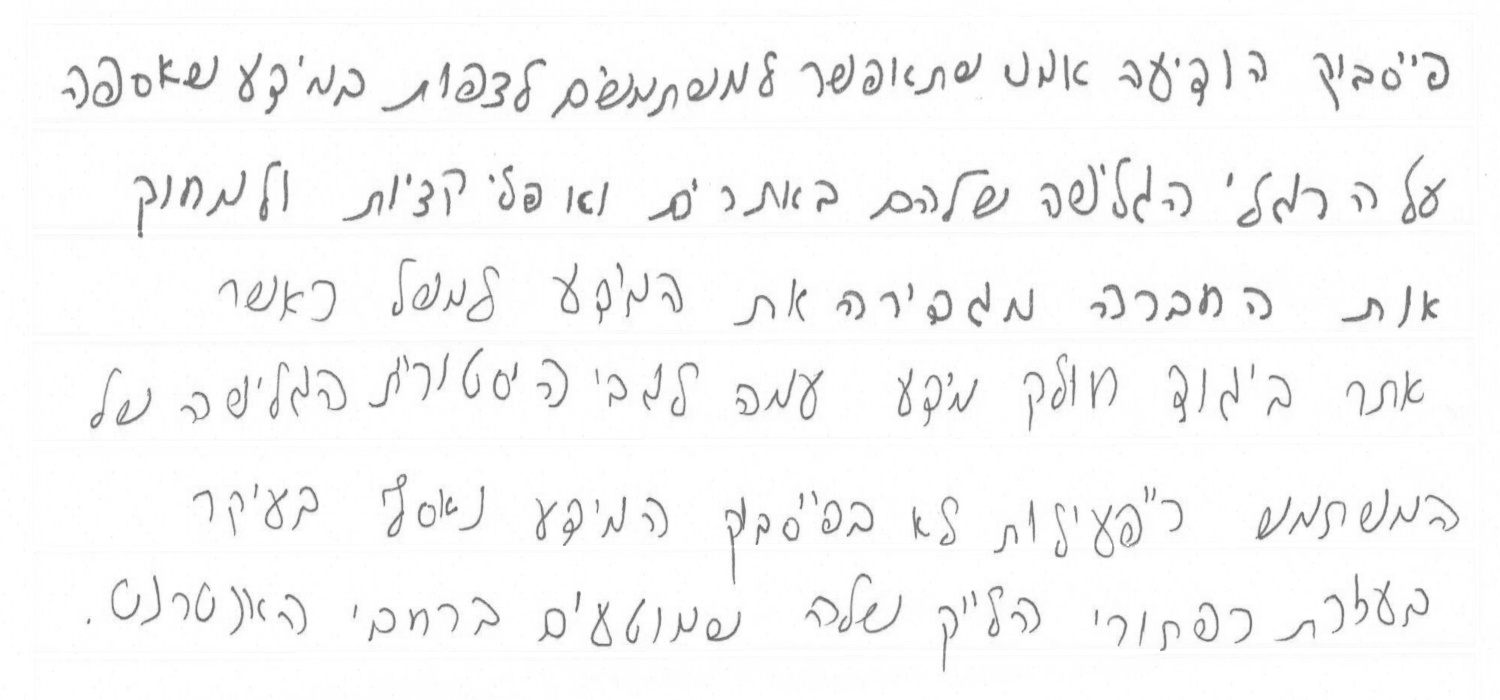 פייסבוק הודיעה אמש שתאפשר למשתמשים לצפות במידע שאספה
על הרגלי הגלישה שלהם באתרים ואפליקציות ולמחוק
אותו החברה מגדירה את המידע למשל כאשר
אתר ביגוד חולק מידע עמה לגבי היסטורית הגלישה של
המשתמש כ"פעילות לא בפייסבוק המידע נאסף בעיקר
בעזרת כפתורי הלייק שלה שמוטעים ברחבי האינטרנט.